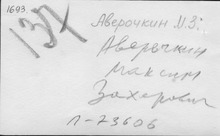 1693
137
Аверочкин М.З.
Аверочкин
Максим
Захарович
Л-73606